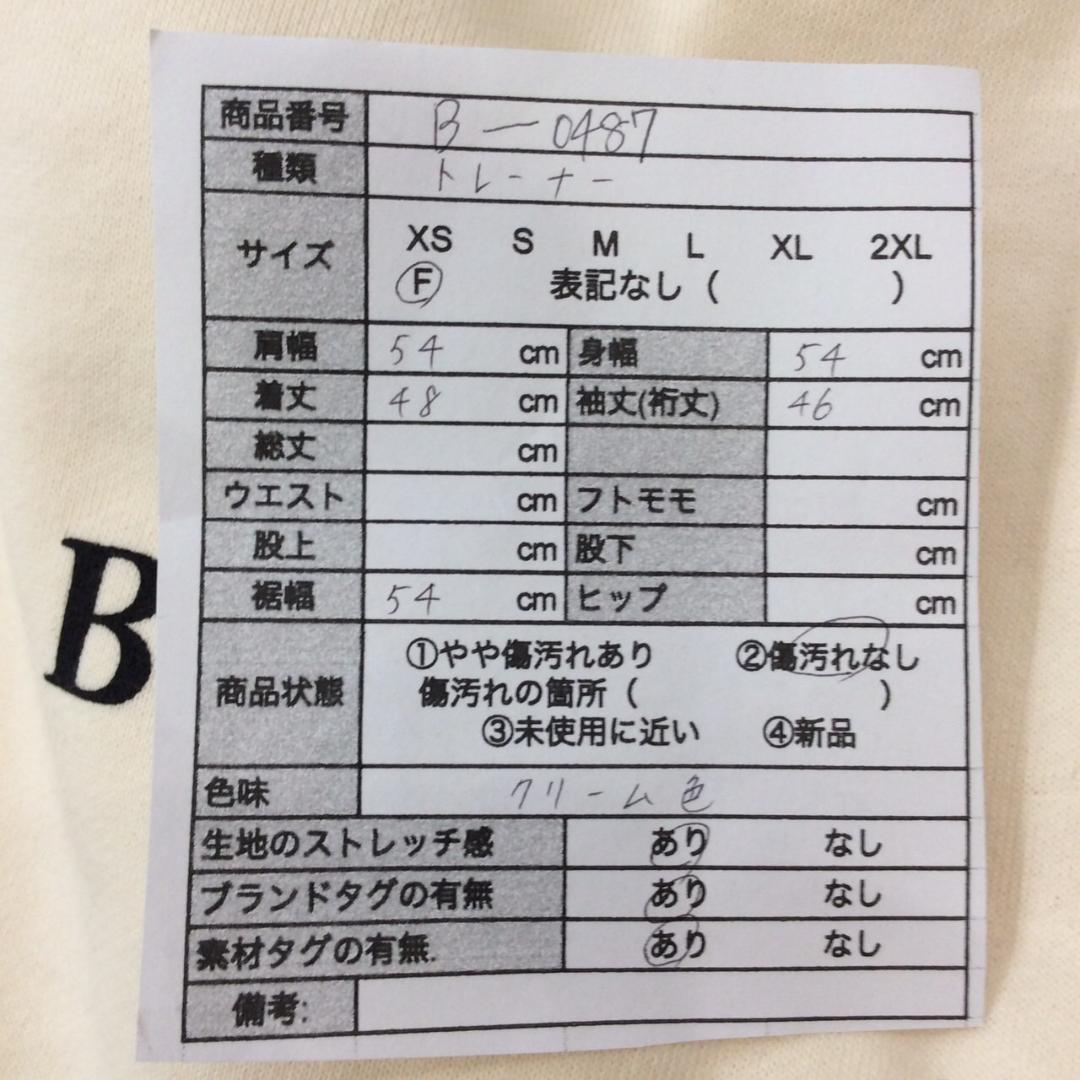 商品番号 B-0487
種類 トレーナー
サイズ XS S M L XL 2XL
F 表記なし ( )
肩幅 54 cm 身幅 54 cm
着丈 48 cm 袖丈(裄丈) 46 cm
総丈 cm
ウエスト cm フトモモ cm
股上 cm 股下 cm
裾幅 54 cm ヒップ cm
B
商品状態 ①やや傷汚れあり ②傷汚れなし
傷汚れの箇所 ( )
③未使用に近い ④新品
色味 クリーム色
生地のストレッチ感 あり なし
ブランドタグの有無 あり なし
素材タグの有無. あり なし
備考: